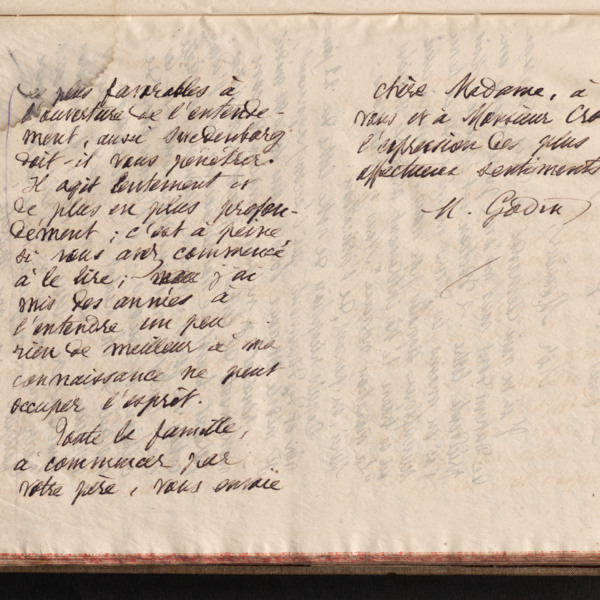 les plus favorables à
l'ouverture de l'entende-
ment, aussi Swedenborg
doit-il vous pénétrer.
Il agit lentement et
de plus en plus profon-
dément ; c'est à peine
si vous avez commencé
à le lire ; j'ai
mis des années à
l'entendre un peu
rien de meilleur à ma
connaissance ne peut
occuper l'esprit.
Toute la famille,
à commencer par
votre père, vous envoie
chère Madame, à
vous et à Monsieur Cro
l'expression des plus
affectueux sentiments
M. Godin